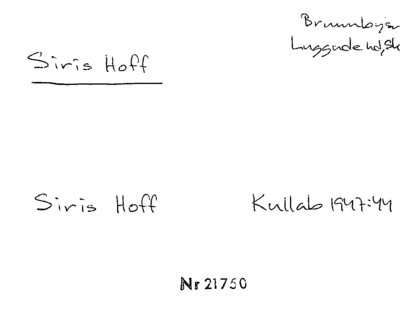 Brunnbysn
Luggude hd, Sk
Siris Hoff
Siris Hoff Kullab 1947:44
Nr 21750